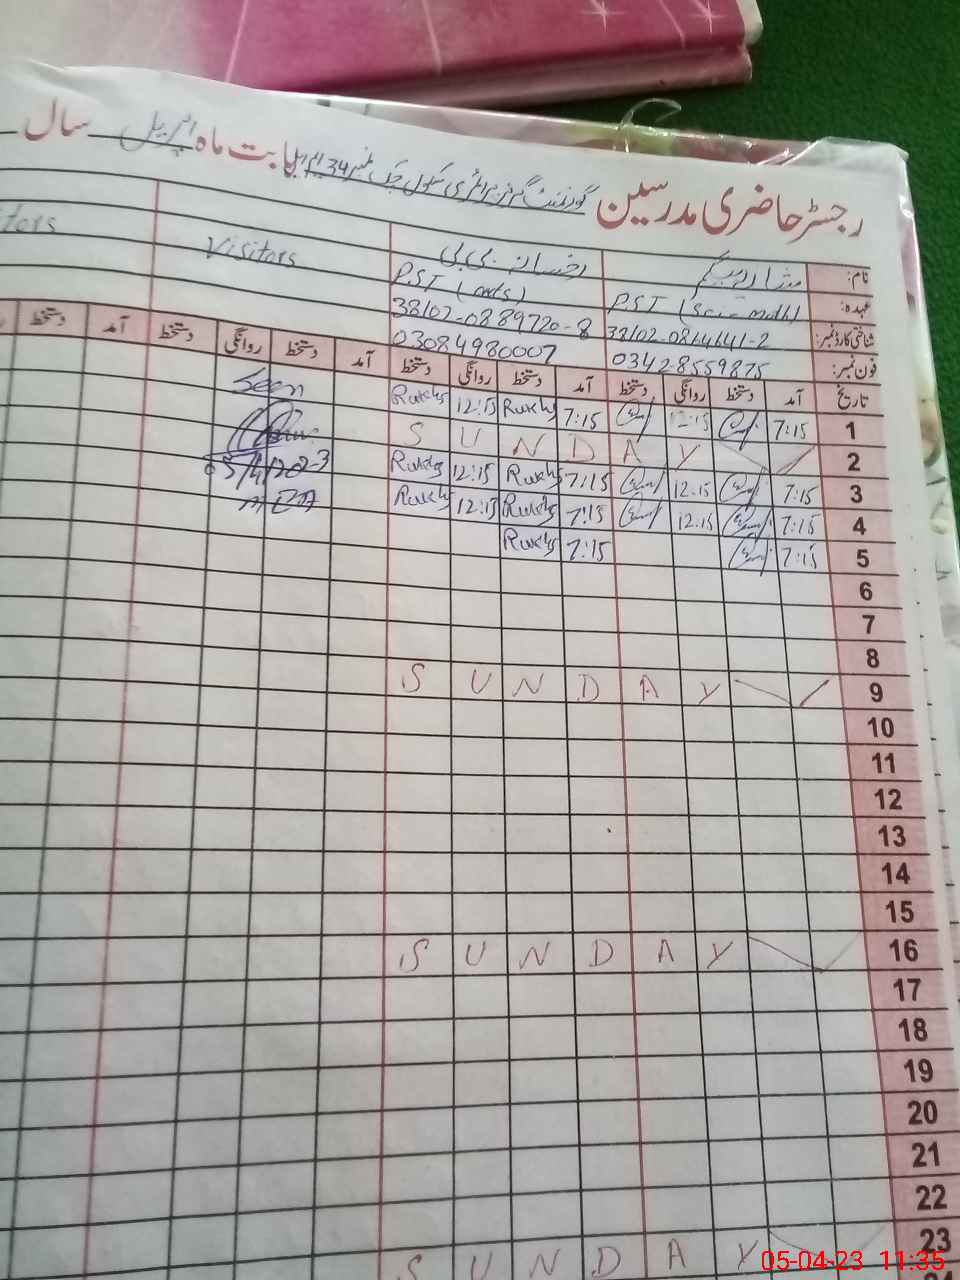 رجسٹر حاضری مدرسین گورنمنٹ گرلز پرائمری سکول چک نمبر 34 بابت ماہ اپریل سال
نام: رخسانہ بی بی Visitors
عہدہ: PST (Sci-math) PST (arts)
شناختی کارڈ نمبر: 38102-0889720-8
فون نمبر: 03428559875 03084980007
تاریخ آمد دستخط روانگی دستخط آمد دستخط روانگی دستخط آمد دستخط روانگی دستخط آمد دستخط
1 7:15 12:15 7:15 Rukhs 12:15 Rukhs Seen
2 S U N D A Y
3 7:15 12:15 7:15 Rukhs 12:15 Rukhs 05/4/2023
4 7:15 12:15 7:15 Rukhs 12:15 Rukhs MEA
5 7:15 7:15 Rukhs
6
7
8
9 S U N D A Y
10
11
12
13
14
15
16 S U N D A Y
17
18
19
20
21
22
23 S U N D A Y
05-04-23 11:35